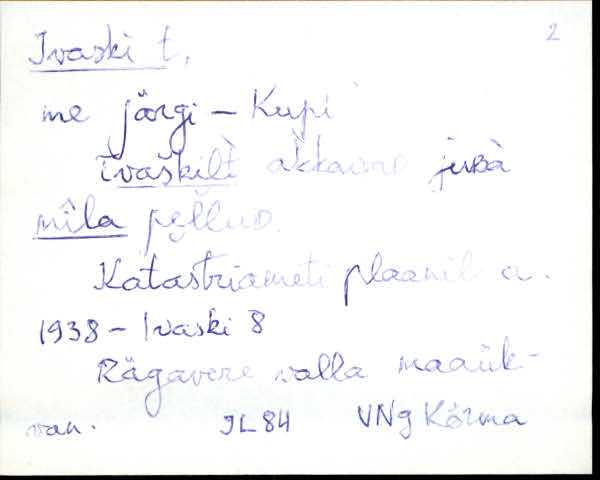 2
Ivaski t,
me järgi – Kupi
ivaškilt̀ akkavD jubà
mîla pe̮llùD.
Katastriameti plaanil a.
1938 – Ivaski 8
Rägavere valla maaük-
van. JL84 VNg Kõrma